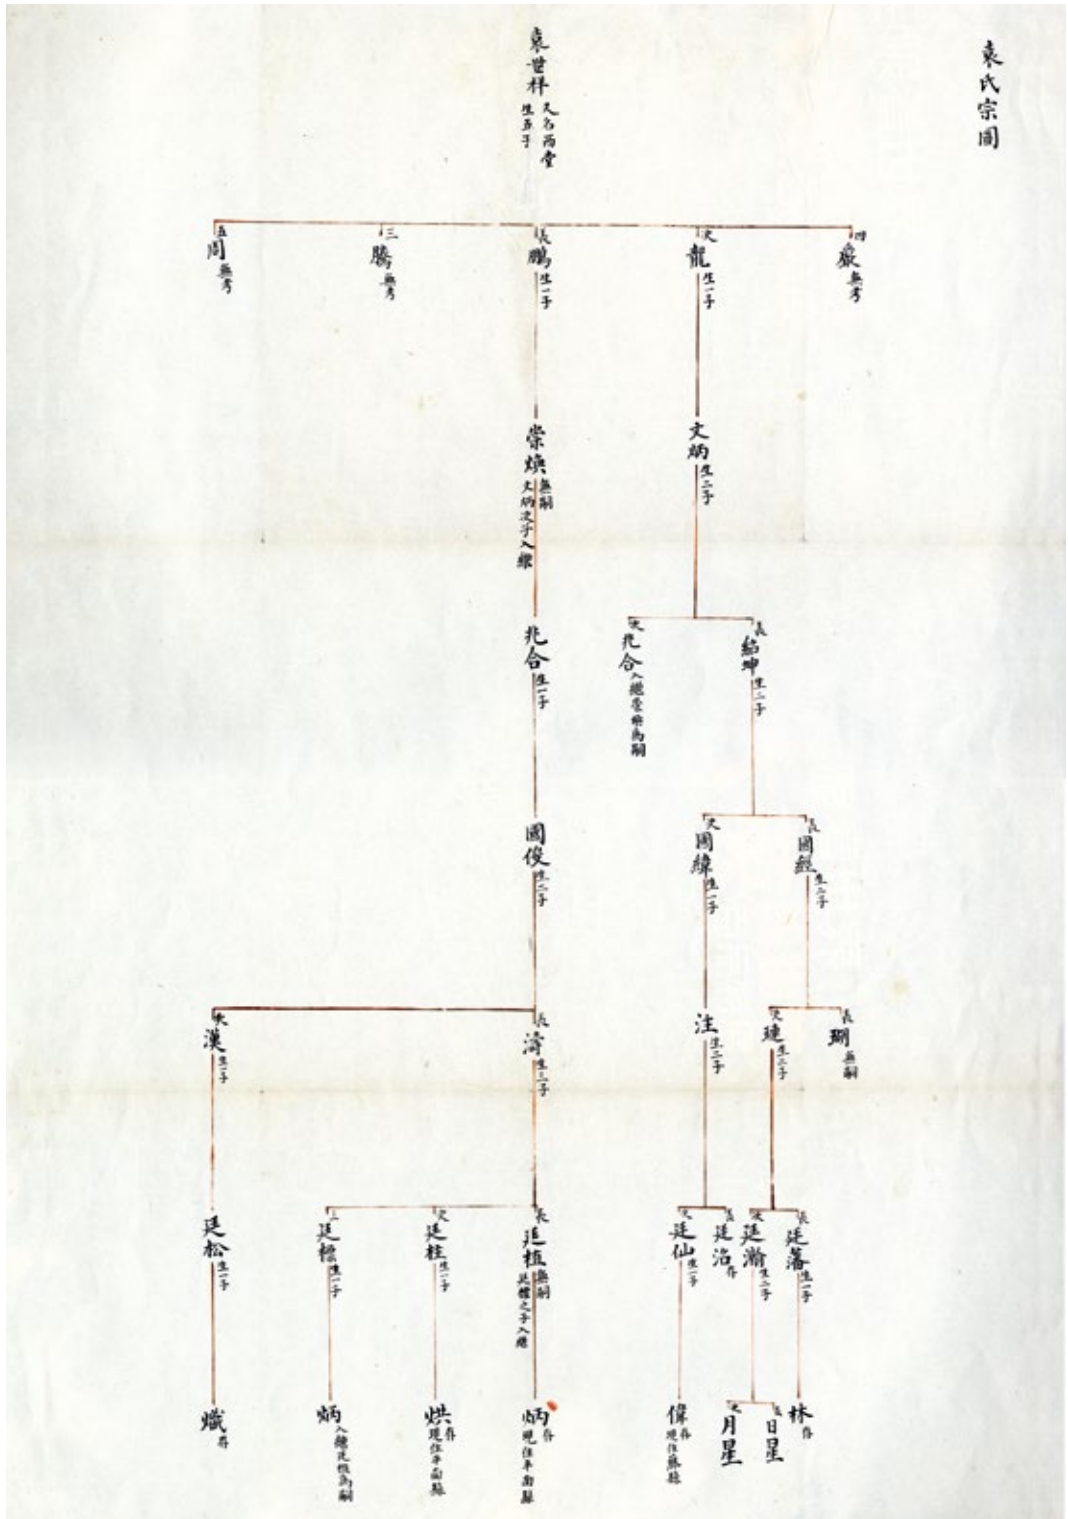 袁氏宗圖
袁世祥
又名西堂
生五子
四
嶽
無考
次
龍
生一子
長
鵬
生一子
三
騰
無考
五
周
無考
文炳
生二子
崇煥
無嗣
文炳次子入繼
長
紹坤
生二子
次
兆合
入繼崇煥為嗣
兆合
生一子
長
國經
生二子
次
國緯
生一子
國俊
生二子
長
瑚
無嗣
次
璉
生二子
注
生二子
長
濤
生三子
次
漢
生一子
長
廷藩
生一子
次
廷瀚
生二子
長
廷洺
存
次
廷仙
生一子
長
廷植
無嗣
廷標之子入繼
次
廷桂
生一子
三
廷標
生一子
廷松
生一子
林
存
長
日星
次
月星
偉
存
現住藤縣
炳
存
現住平南縣
烘
存
現住平南縣
炳
入繼廷植為嗣
熾
存